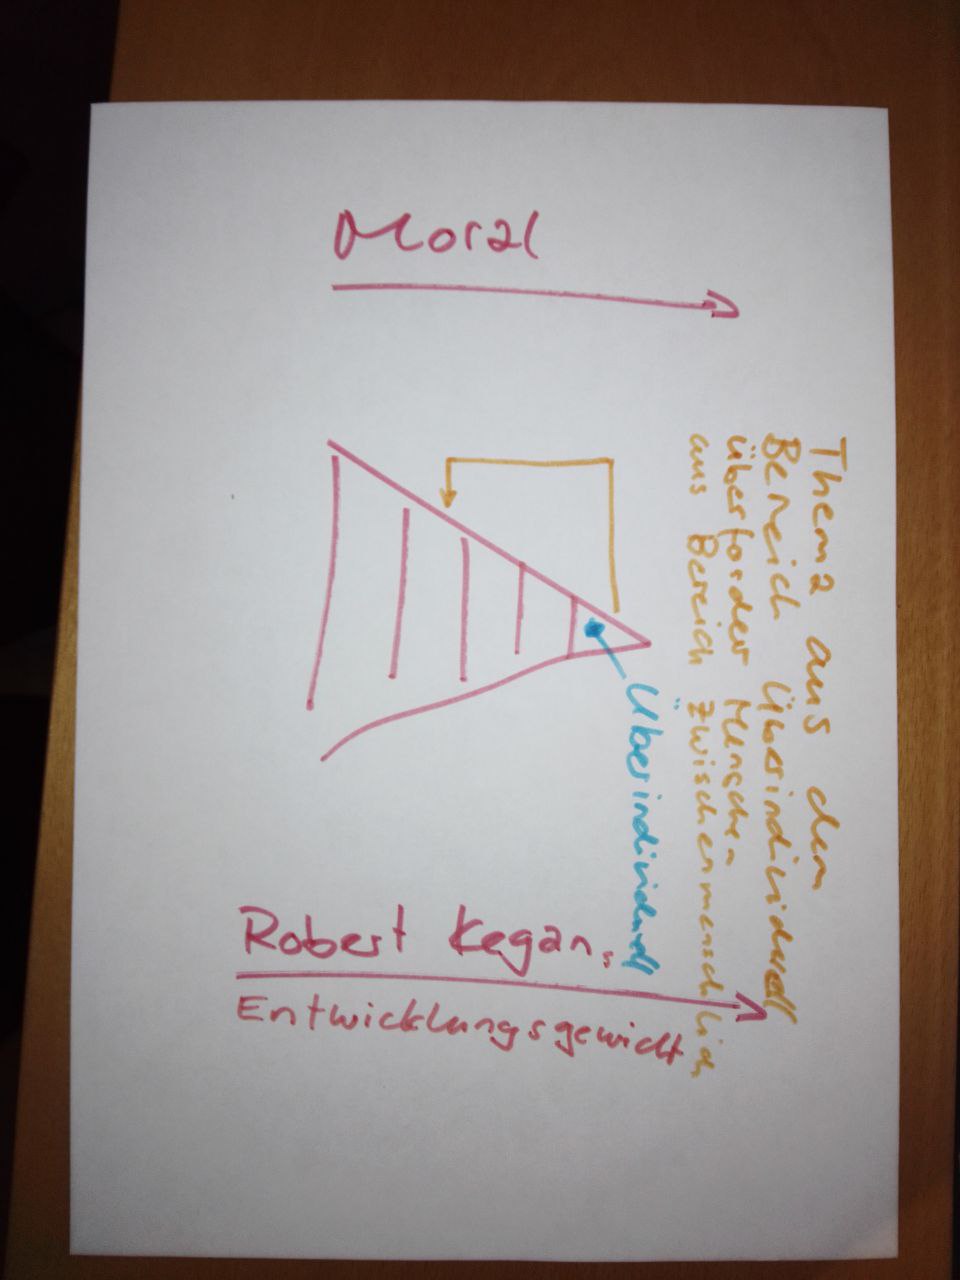 Thema aus dem
Bereich Überindividuell
überforder Menschen
aus Bereich zwischenmenschlich
Überindividuell
Moral
Robert Kegan:
Entwicklungsgewicht